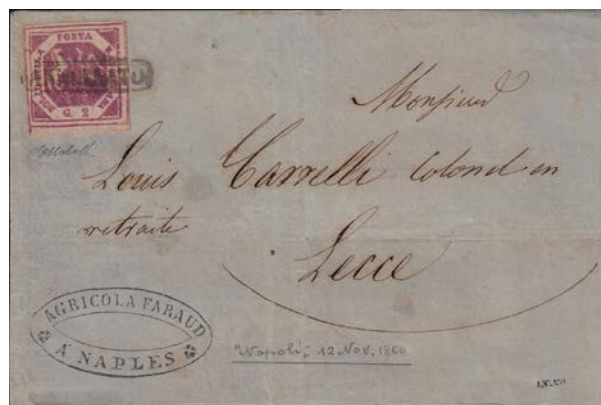 POSTA
BOLLO DELLA
NAPOLETANA
G. 2
ANNULLATO
Monsieur
Louis Carrelli Colonel en
retraite
Lecce
AGRICOLA FARAUD
A NAPLES
"Napoli", 12 Nov. 1860